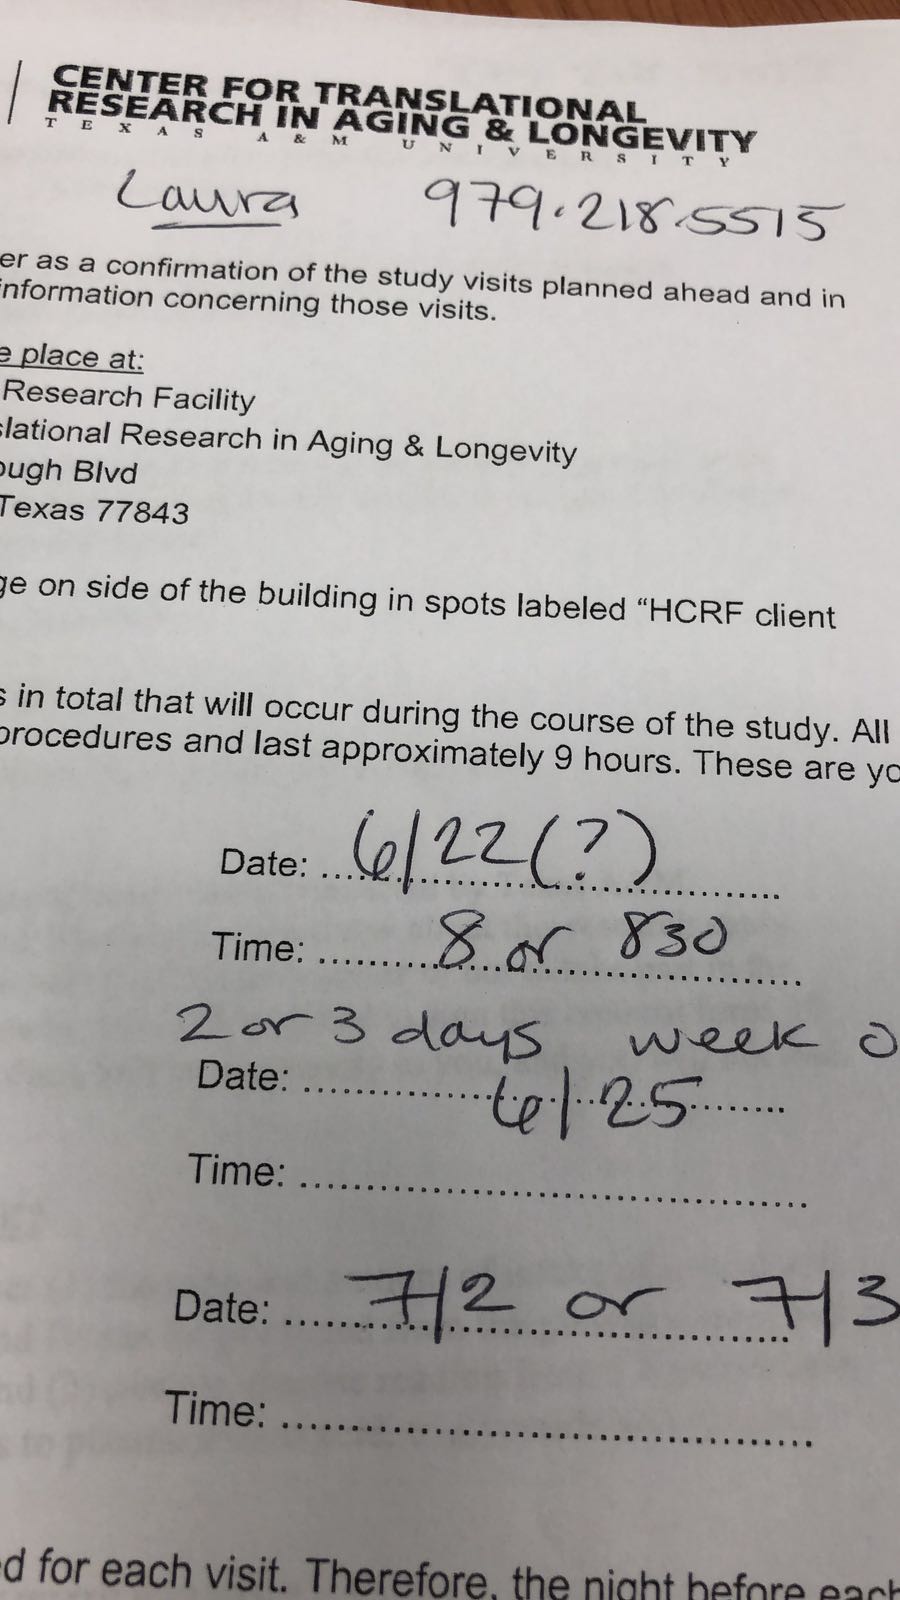 CENTER FOR TRANSLATIONAL
RESEARCH IN AGING & LONGEVITY
TEXAS A&M UNIVERSITY
Laura 979.218.5515
er as a confirmation of the study visits planned ahead and in
information concerning those visits.
e place at:
Research Facility
slational Research in Aging & Longevity
ough Blvd
Texas 77843
ge on side of the building in spots labeled “HCRF client
s in total that will occur during the course of the study. All
procedures and last approximately 9 hours. These are yo
Date: 6/22(?)
Time: 8 or 830
2 or 3 days week o
Date: 6/25
Time:
Date: 7/2 or 7/3
Time:
d for each visit. Therefore, the night before each